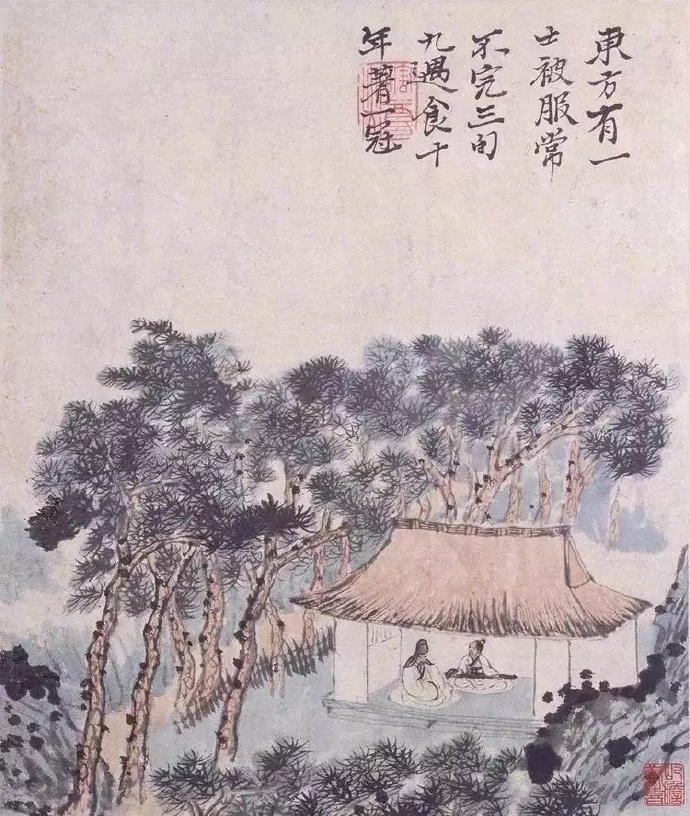 東方有一
士被服常
不完三旬
九遇食十
年著一冠